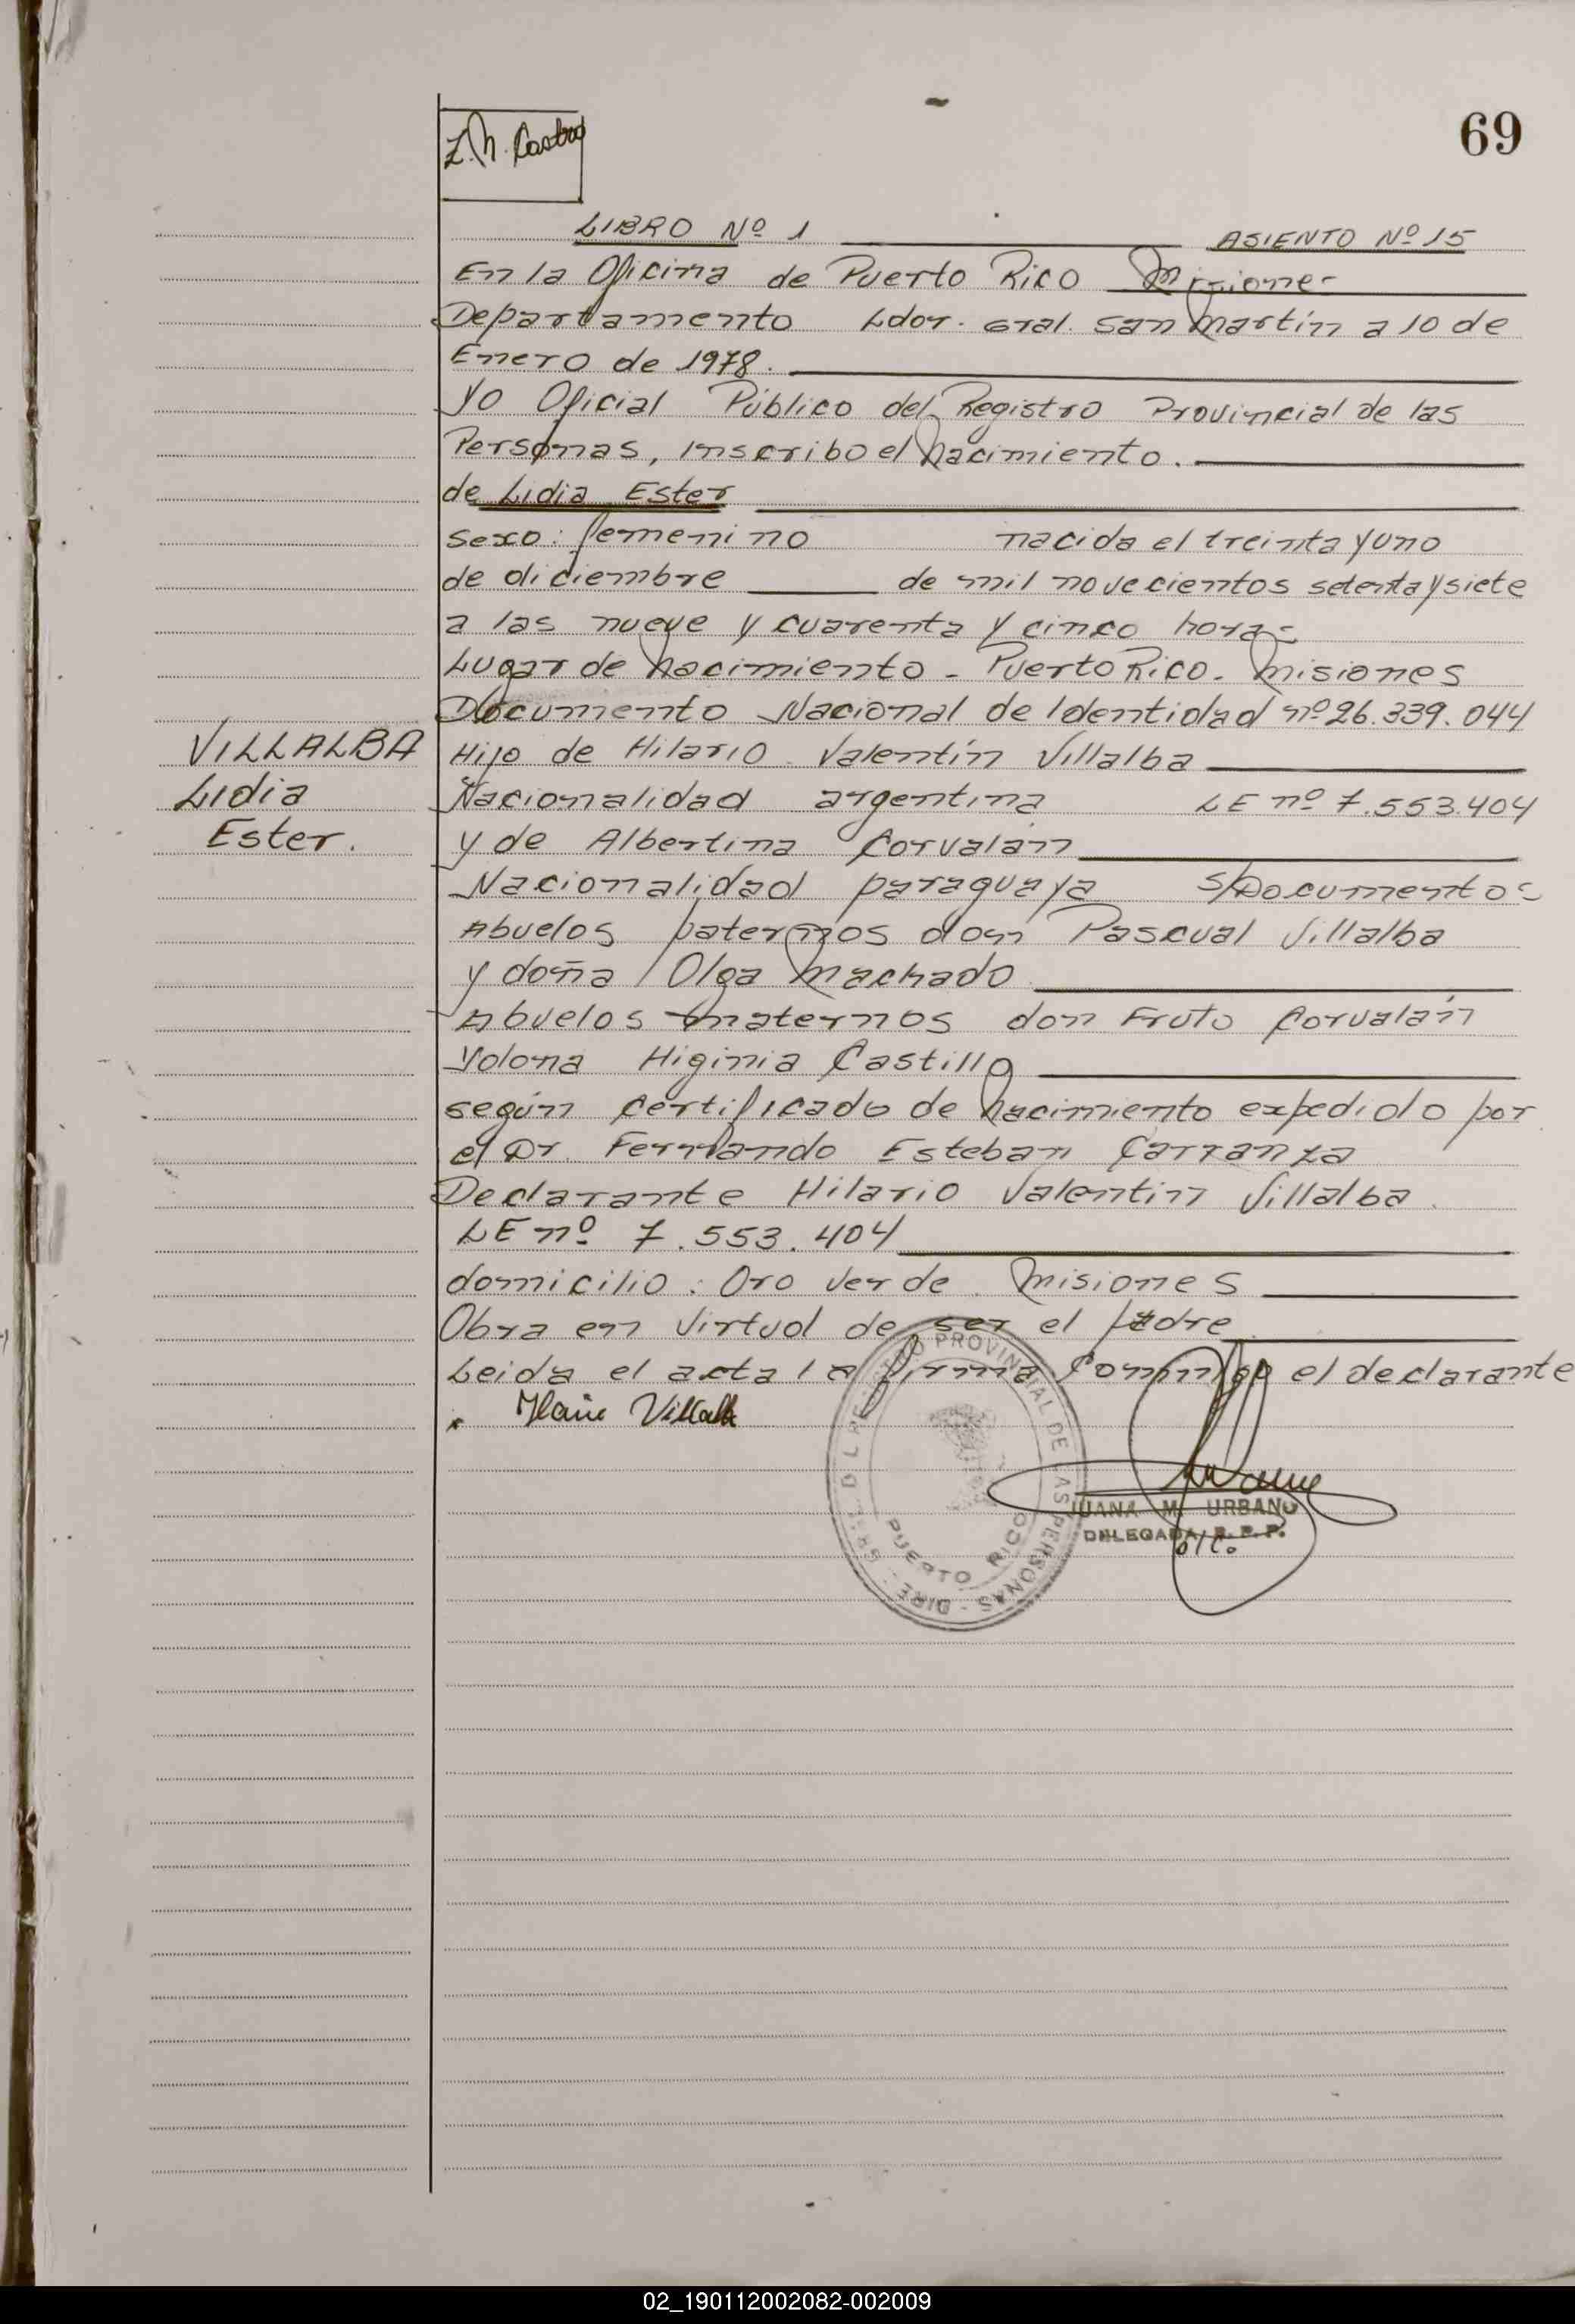 69
Z. N. Castro
LIBRO Nº 1 ASIENTO Nº 15
En la Oficina de Puerto Rico Misiones
Departamento Ldor. Gral. San Martín a 10 de
Enero de 1978.
Yo Oficial Público del Registro Provincial de las
Personas, Inscribo el Nacimiento.
de Lidia Ester
sexo: femenino nacida el treinta y uno
de diciembre de mil novecientos setenta y siete
a las nueve y cuarenta y cinco horas
Lugar de Nacimiento - Puerto Rico - Misiones
Documento Nacional de Identidad nº 26.339.044
VILLALBA Hijo de Hilario Valentín Villalba
Lidia Nacionalidad argentina LE nº 7.553.404
Ester. y de Albertina Corvalán
Nacionalidad paraguaya S/Documentos
Abuelos paternos don Pascual Villalba
y doña Olga Machado
Abuelos maternos don Fruto Corvalán
y dona Higinia Castillo
según certificado de Nacimiento expedido por
el Dr. Fernando Esteban Carranza
Declarante Hilario Valentin Villalba
LE nº 7.553.404
domicilio: Oro Verde. Misiones
Obra en Virtud de ser el padre
Leida el acta la firma Conmigo el declarante
Villalb
REGISTRO PROVINCIAL DE LAS PERSONAS
PUERTO RICO
JUANA M. URBANO
DELEGADA R. P. P.
02_190112002082-002009